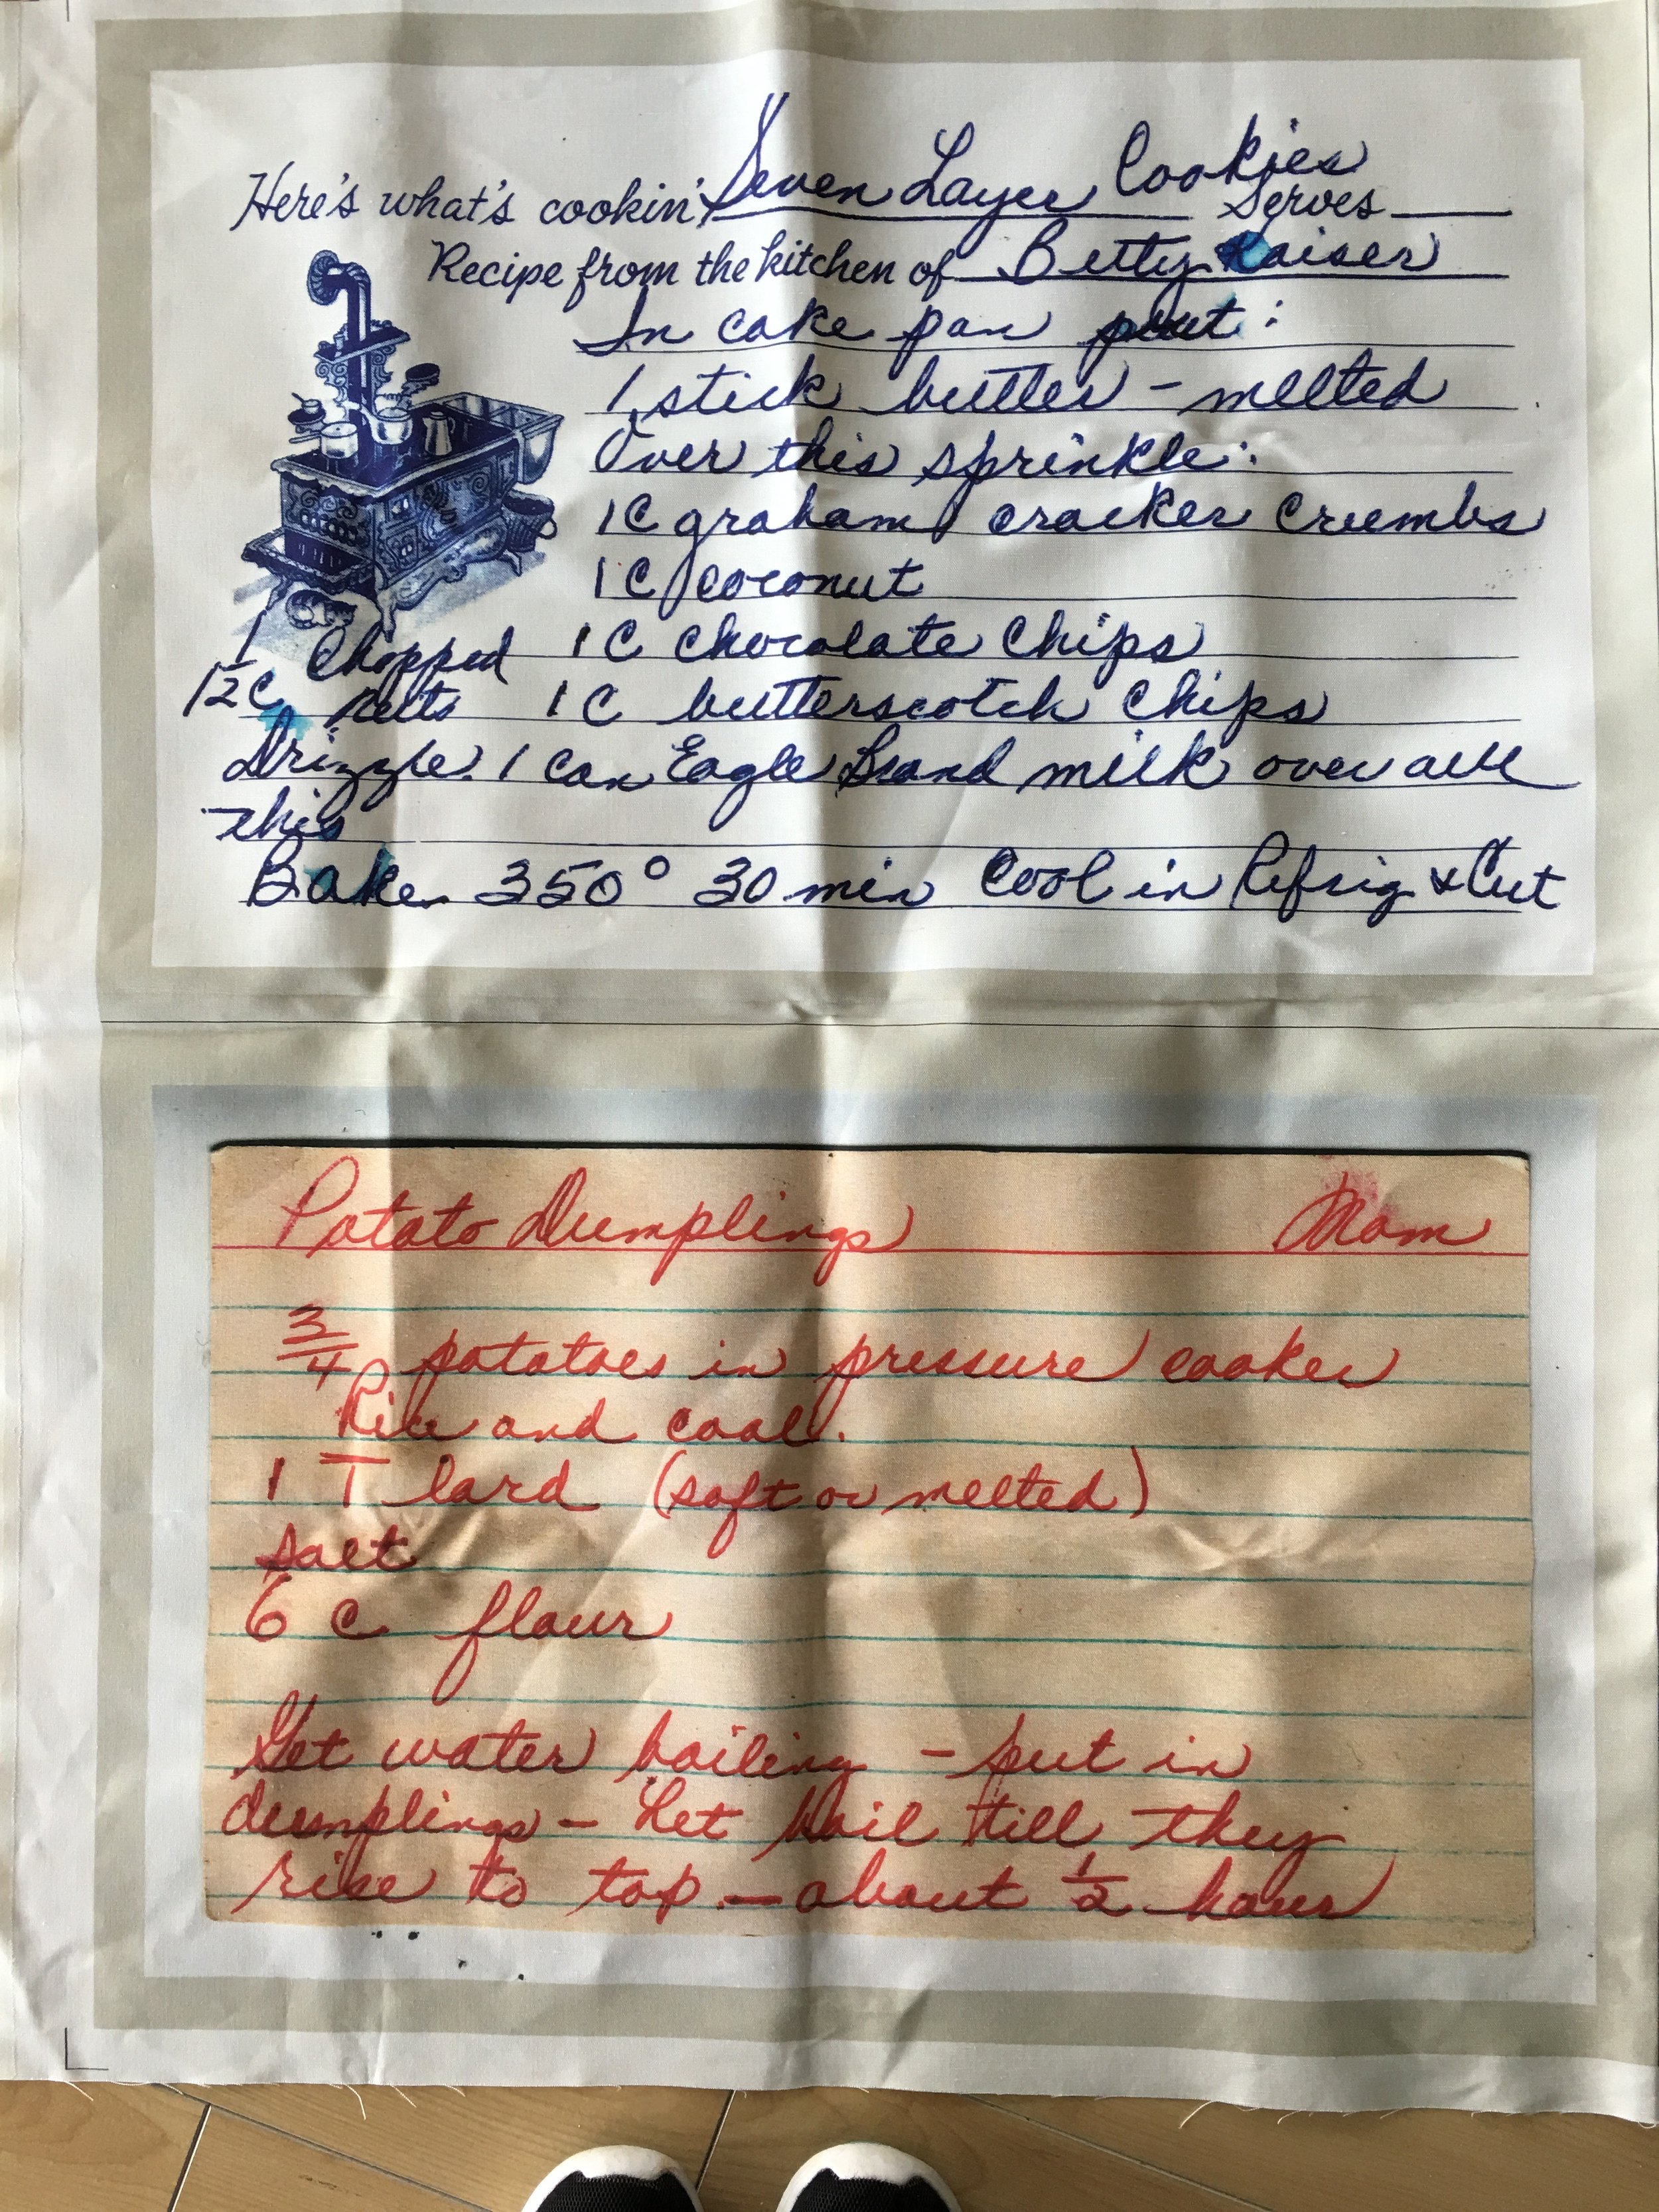 Here's what's cookin' Seven Layer Cookies Serves
Recipe from the kitchen of Betty Kaiser
In cake pan put:
1 stick butter - melted
Over this sprinkle:
1C graham cracker crumbs
1C coconut
1C chocolate chips
1 1/2C Chopped nuts
1C butterscotch chips
Drizzle 1 can Eagle Brand milk over all
this
Bake 350° 30 min Cool in Refrig & Cut
Potato Dumplings Mom
3/4 potatoes in pressure cooker
Rice and cool.
1 T lard (soft or melted)
salt
6 c flour
Get water boiling - put in
dumplings - Let boil till they
rise to top - about 1/2 hour